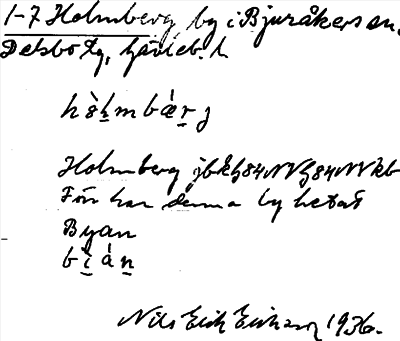 1-7 Holmberg, by i Bjuråkers sn,
Delsbo tg, Gävleb. l.
hòlmbær j
Holmberg jbkg84NVg84NVkb
Förr har denna by hetat
Byan
bián
Nils Erik Eriksson 1936.